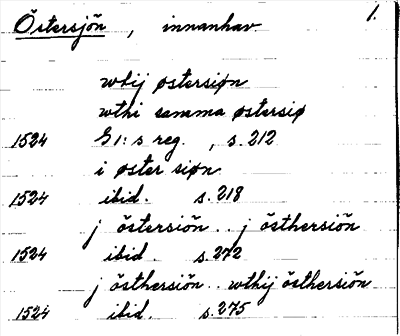 Östersjön, innanhav. 1.
wtij østersiøn
wthi samma østersiø
1524 G1:s reg., s. 212
i øster siøn
1524 ibid. s. 218
j östersiön .. j östhersiön
1524 ibid. s. 272
j östhersiön .. wthij östhersiön
1524 ibid. s. 275